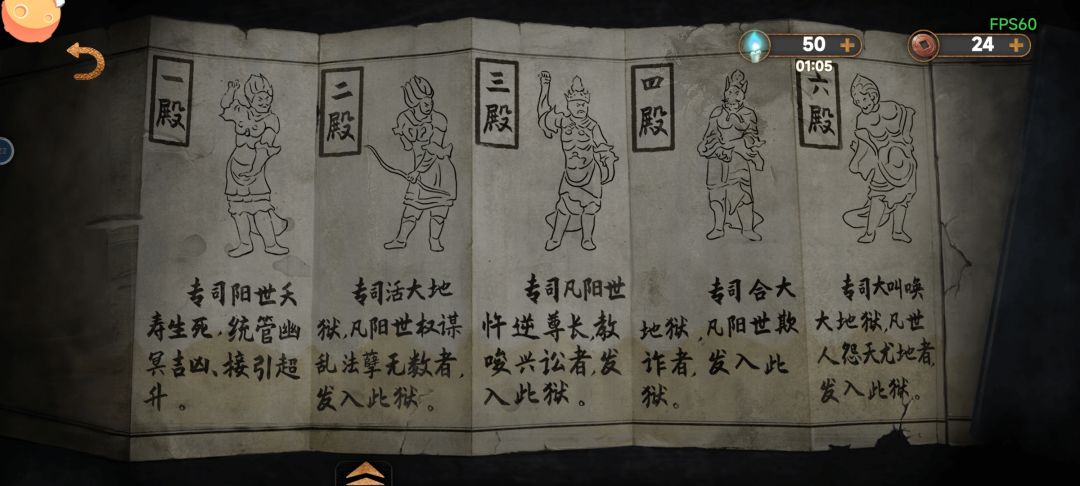 FPS60
50
24
01:05
一殿
专司阳世夭
寿生死,统管幽
冥吉凶、接引超
升。
二殿
专司活大地
狱,凡阳世权谋
乱法孽无数者,
发入此狱。
三殿
专司凡阳世
忤逆尊长,教
唆兴讼者,发
入此狱。
四殿
专司合大
地狱,凡阳世欺
诈者,发入此
狱。
六殿
专司大叫唤
大地狱,凡世
人怨天尤地者,
发入此狱。